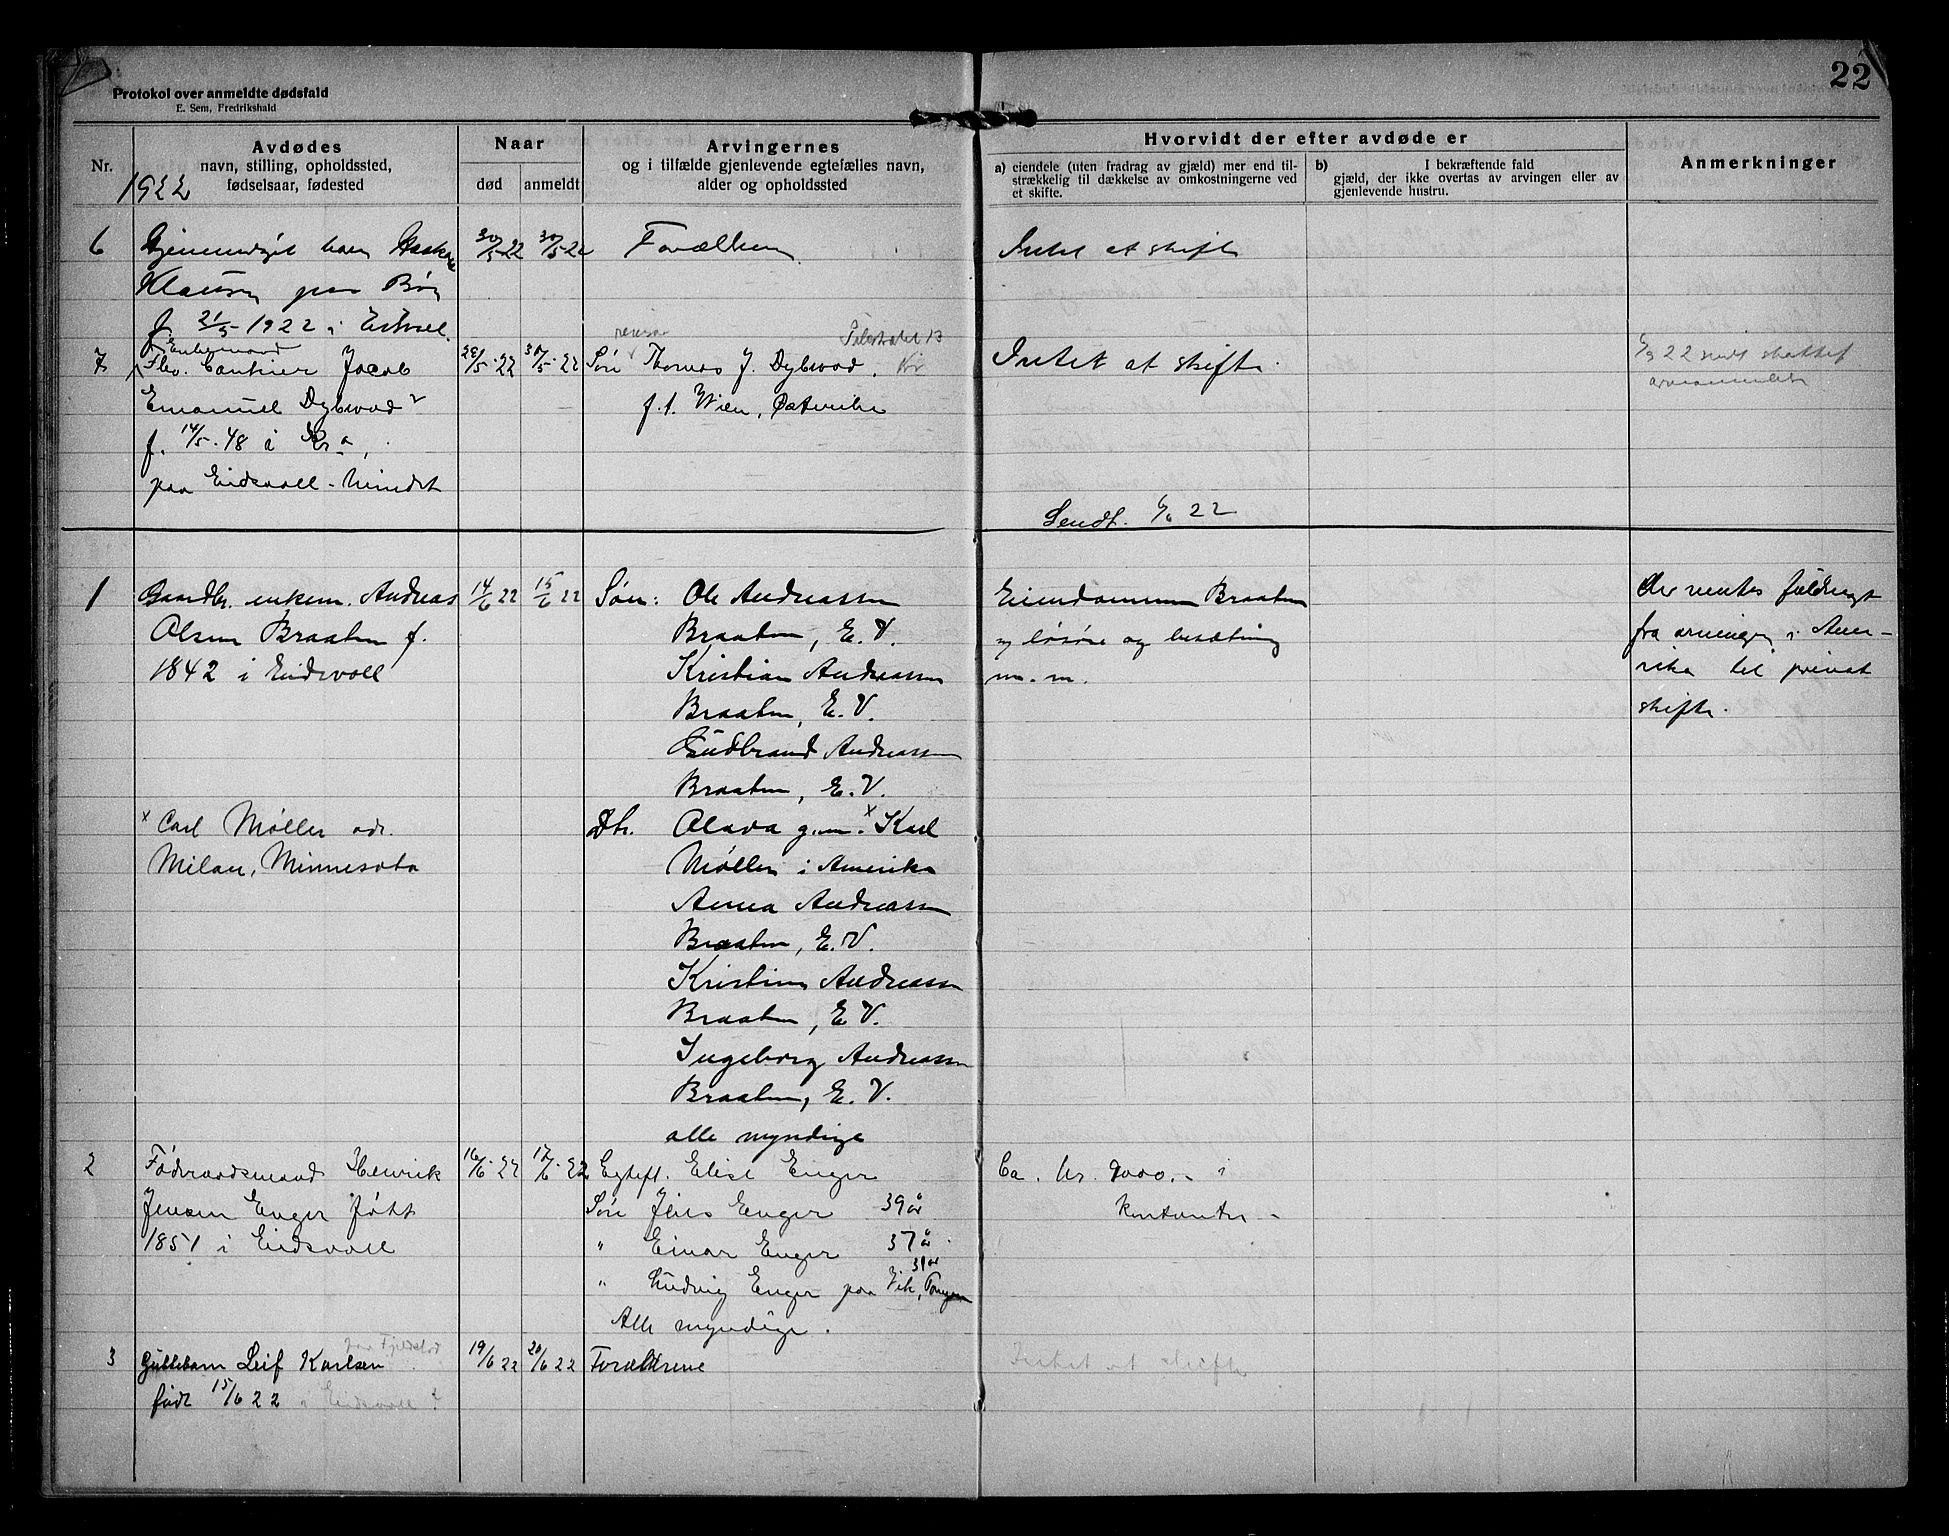 22
Protokol over anmeldte dødsfald
E. Sem, Fredrikshald
Nr.
Avdødes
navn, stilling, opholdssted,
fødselsaar, fødested
1922
Naar
død
anmeldt
Arvingernes
og i tilfælde gjenlevende egtefælles navn,
alder og opholdssted
Hvorvidt der efter avdøde er
a) eiendele (uten fradrag av gjæld) mer end til-
strækkelig til dækkelse av omkostningerne ved
et skifte.
b) I bekræftende fald
gjæld, der ikke overtas av arvingen eller av
gjenlevende hustru.
Anmerkninger
6
barn
Klausen paa
f. 21/5-1922 i
30/5-22
30/5-22
Intet at skifte
7
Enkemand
Jacob
Emanuel Dybwad
f. 14/5-48 i Kra,
paa Eidsvoll
28/5-22
30/5-22
Søn Thomas J. Dybwad,
f.t. Wien, Østerrike
Intet at skifte.
Sendt. 6/6 22
1
Gaardbr. enkem. Andreas
Olsen Braaten f.
1842 i Eidsvoll
14/6 22
15/6 22
Søn: Ole Andreassen
Braaten, E. V.
Kristian Andreassen
Braaten, E. V.
Gudbrand Andreassen
Braaten, E. V.
Eiendommen Braaten
og løsøre og besætning
m. m.
Der ventes fuldmagt
fra arvingen i Ame-
rika til privat
skifte.
x Carl Møller adr.
Milan, Minnesota
Dtr. Olava g.m. x Karl
Møller i Amerika
Anna Andreassen
Braaten, E. V.
Kristine Andreassen
Braaten, E V.
Ingeborg Andreassen
Braaten, E. V.
alle myndige
2
Føderaadsmand Henrik
Jensen Enger født
1851 i Eidsvoll
16/6-22
17/6-22
Egtef. Elise Enger
Søn Jens Enger 39 år
" Einar Enger 37 år
31 år
" Ludvig Enger paa Vik,
Alle myndige.
Ca. kr. 9000.- i
kontanter -
3
Guttebarn Leif Karlsen
født 15/6 22 i Eidsvoll
19/6 22
20/6 22
Forældrene
Intet at skifte